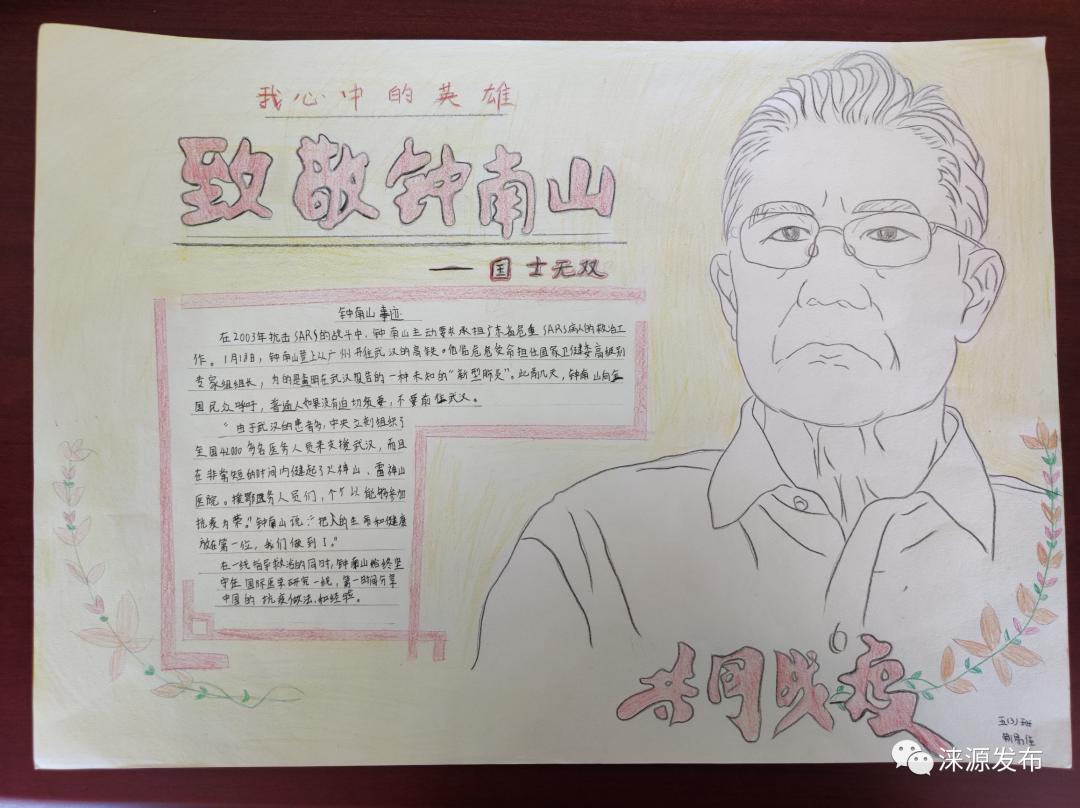 我心中的英雄
致敬钟南山
——国士无双
钟南山事迹
在2003年抗击SARS的战斗中,钟南山主动要求承担广东省危重SARS病人的救治工
作。1月18日,钟南山登上从广州开往武汉的高铁。他临危受命担任国家卫健委高级别
专家组组长,为的是查明在武汉报告的一种未知的“新型肺炎”。此前几天,钟南山向全
国民众呼吁,普通人如果没有迫切须要,不要前往武汉。
“由于武汉的患者多,中央立刻组织了
全国42000多名医务人员来支援武汉,而且
在非常短的时间内健起了火神山、雷神山
医院。援鄂医务人员们,个个以能够参加
抗疫为荣。”钟南山说:“把人的生命和健康
放在第一位,我们做到了。”
在一线指导救治的同时,钟南山始终坚
守在国际医学研究一线,第一时间分享
中国的抗疫做法和经验。
共同战疫
五(3)班
涞源发布